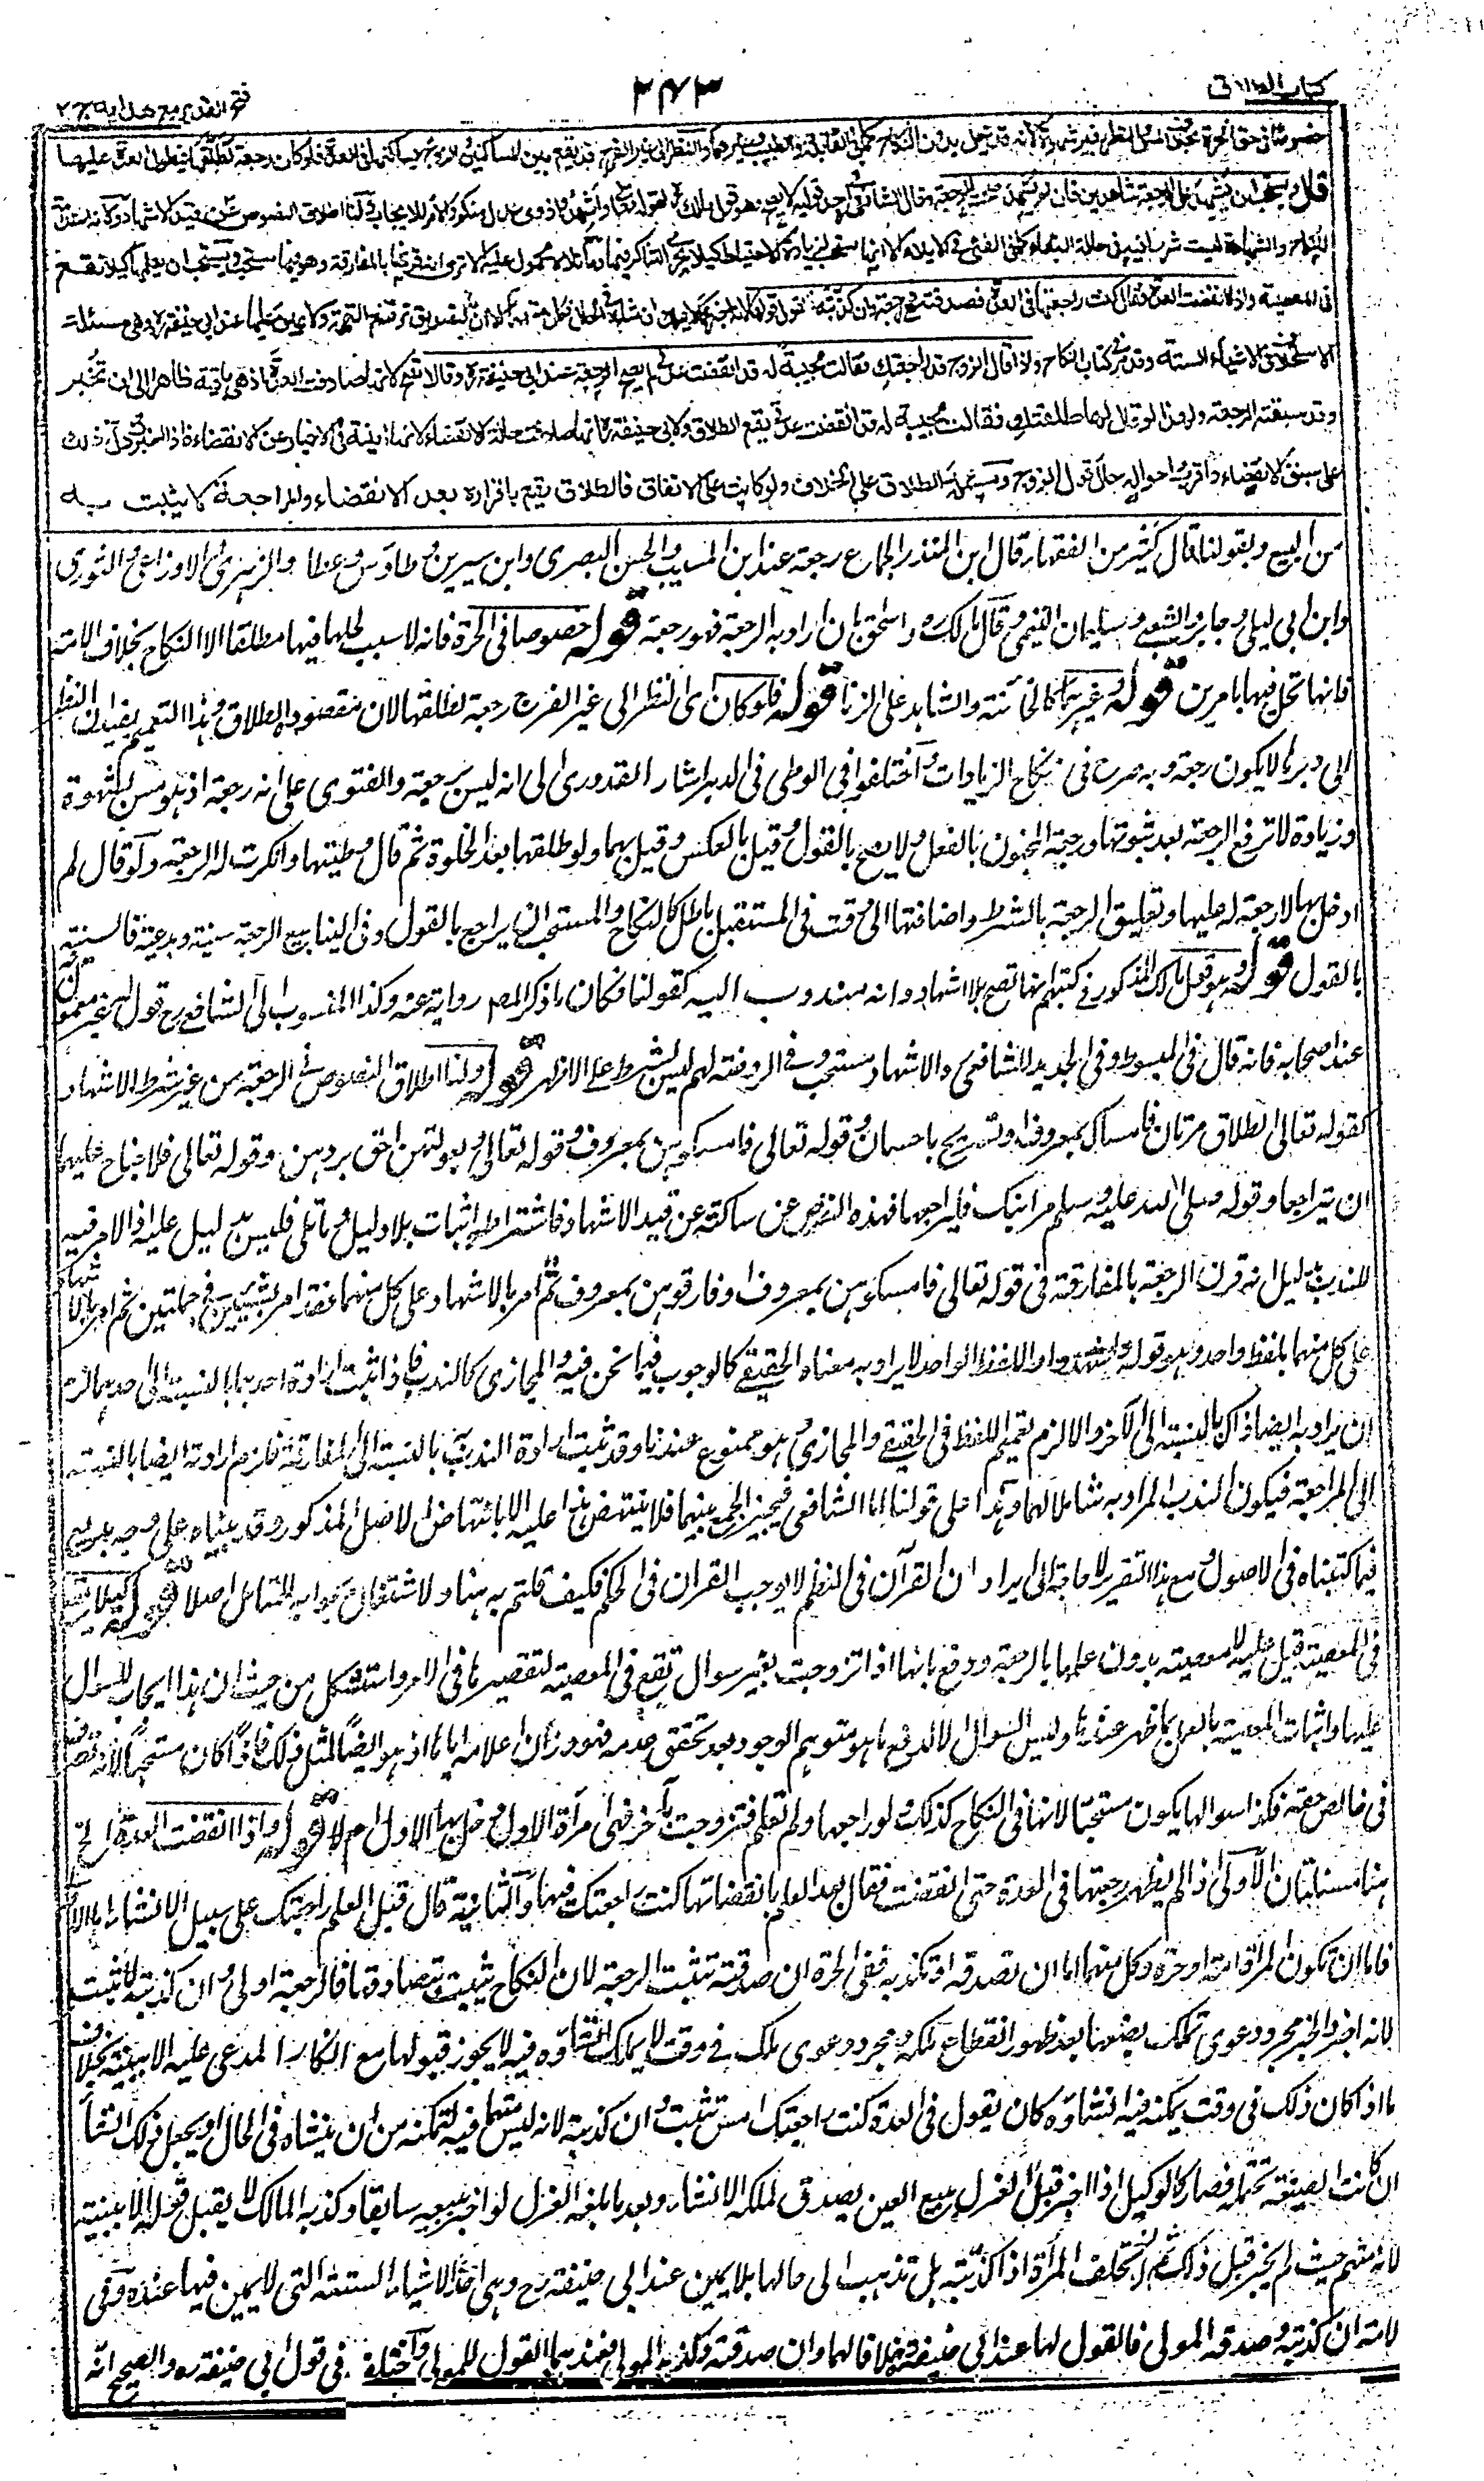 كتاب الطلاق
٢٧٣
فتح القدير مع هدايه ج ٢
خصوصا في حق الحرة بخلاف المس والنظر بغير شهوة لانه قد يحل بدون النكاح كما في القابلة والطبيب وغيرهما والنظر الى غير الفرج قد يقع بين المساكنين والزوج يساكنها في العدة فلو كان رجعة لطلقها فيطول العدة عليها
قال ويستحب ان يشهد على الرجعة شاهدين فان لم يشهد صحت الرجعة وقال الشافعي في احد قوليه لا يصح وهو قول مالك لقوله تعالى واشهدوا ذوى عدل منكم والامر للايجاب ولنا اطلاق النصوص عن قيد الاشهاد ولانه استدامة
للنكاح والشهادة ليست شرطا فيه في حالة البقاء كما في الفئ في الايلاء الا انها تستحب لزيادة الاحتياط كيلا يجرى التناكر فيها وما تلاه محمول عليه الا ترى انه قرنها بالمفارقة وهو فيها مستحب ويستحب ان يعلمها كيلا تقع
في المعصية واذا انقضت العدة فقال كنت راجعتها في العدة فصدقته فهي رجعة وان كذبته فالقول قولها لانه اخبر عما لا يملك انشاءه في الحال فكان متهما الا ان بالتصديق ترتفع التهمة ولا يمين عليها عند ابي حنيفة وهي مسئلة
الاستحلاف في الاشياء الستة وقد مر في كتاب النكاح واذا قال الزوج قد راجعتك فقالت مجيبة له قد انقضت عدتي لم يصح الرجعة عند ابي حنيفة وقالا تصح لانها صادفت العدة اذ هي باقية ظاهرا الى ان تخبر
وقد سبقته الرجعة ولهذا لو قال لها طلقتك فقالت مجيبة له قد انقضت عدتي يقع الطلاق ولابي حنيفة انها صادفت حالة الانقضاء لانها امينة في الاخبار عن الانقضاء فاذا اخبرت دل ذلك
على سبق الانقضاء واقرب احواله حال قول الزوج ومسئلة الطلاق على الخلاف ولو كانت على الاتفاق فالطلاق يقع باقراره بعد الانقضاء والمراجعة لا يثبت به
من البيع وبقولنا قال كثير من الفقهاء قال ابن المنذر الجماع رجعة عند ابن المسيب والحسن البصرى وابن سيرين وطاوس وعطا والزهرى والاوزاعي والثورى
وابن ابي ليلى وجابر والشعبي وسليمان التيمي وقال مالك واسحق ان اراد به الرجعة فهو رجعة قوله خصوصا في الحرة فانه لا سبب لحلها فيها مطلقا الا النكاح بخلاف الامة
فانها تحل فيها بامرين قوله وغيرهما كالخاتنة والشاهد على الزنا قوله فلو كان اى النظر الى غير الفرج رجعة لطلقها لان مقصوده الطلاق وهذا التعميم يفيد ان النظر
الى دبرها لا يكون رجعة وبه صرح في نكاح الزيادات واختلفوا في الوطى في الدبر اشار القدورى الى انه ليس برجعة والفتوى على انه رجعة اذ هو مس بشهوة
وزيادة لا ترفع الرجعة بعد ثبوتها ورجعة المجنون بالفعل ولا تصح بالقول وقيل بالعكس وقيل بهما ولو طلقها بعد الخلوة ثم قال وطئتها وانكرت له الرجعة ولو قال لم
ادخل بها لا رجعة له عليها وتعليق الرجعة بالشرط واضافتها الى وقت في المستقبل باطل كالنكاح والمستحب ان يراجع بالقول وفي الينابيع الرجعة سنية وبدعية فالسنية
بالقول قوله وهو قول مالك المذكور في كتبهم انها تصح بلا اشهاد وانه مندوب اليه كقولنا فكان ما ذكر المص رواية عنه وكذا المنسوب الى الشافعي رح قول له غير معمول
عند اصحابه فانه قال في المبسوط وفي الجديد للشافعي والاشهاد مستحب وفي الروضة لهم ليس بشرط على الاظهر قوله ولنا اطلاق النصوص في الرجعة من غير شرط الاشهاد
كقوله تعالى الطلاق مرتان فامساك بمعروف او تسريح باحسان وقوله تعالى فامسكوهن بمعروف وقوله تعالى وبعولتهن احق بردهن وقوله تعالى فلا جناح عليهما
ان يتراجعا وقوله صلى الله عليه وسلم مر ابنك فليراجعها فهذه النصوص عن ساكتة عن قيد الاشهاد فاشتراطه اثبات بلا دليل وما تلى فليس بدليل عليه اذ الامر فيه
للندب بدليل انه قرن الرجعة بالمفارقة في قوله تعالى فامسكوهن بمعروف او فارقوهن بمعروف ثم امر بالاشهاد على كل منهما فقد امر بشيئين في جملتين ثم امر بالاشهاد
على كل منهما بلفظ واحد وهو قوله واشهدوا واللفظ الواحد لا يراد به معناه الحقيقي كالوجوب فيما نحن فيه والمجازى كالندب فاذا ثبت ارادة احدهما بالنسبة الى احدهما لزم
ان يراد به ايضا ذاك بالنسبة الى الآخر والا لزم تعميم اللفظ في الحقيقي والمجازى وهو ممنوع عندنا وقد ثبت ارادة الندب بالنسبة الى المفارقة فلزم ارادته ايضا بالنسبة
الى المراجعة فيكون الندب المراد به شاملا لهما وهذا على قولنا اما الشافعي فيجيز الجمع بينهما فلا ينتهض هذا عليه الا بانتهاض الاصل المذكور وقد بيناه على وجه يرجى
فيما كتبناه في الاصول ومع هذا التقرير لا حاجة الى ايراد ان القرآن في النظم لا يوجب القران في الحكم فكيف قلتم به هنا ولا اشتغال بجوابه للمتامل اصلا قوله كيلا تقع
في المعصية قيل عليه لا معصية بدون علمها بالرجعة ودفع بانها اذا تزوجت بغير سوال تقع في المعصية لتقصيرها في الامر واستشكل من حيث ان هذا ايجاب للسوال
عليها واثبات المعصية بالعمل بما ظهر عندها وليس السوال الا لدفع ما هو متوهم الوجود بعد تحقق عدمه فهو وزان اعلامه اياها اذ هو ايضا لمثل ذلك فاذا كان مستحبا لانه تصرف
في خالص حقه فكذا سوالها يكون مستحبا لانها في النكاح كذلك ولو راجعها ولم تعلم فتزوجت بآخر فهي امرأة الاول دخل بها الاول ام لا قوله واذا انقضت العدة الخ
هنا مسئلتان الاولى اذا لم يظهر رجعتها في العدة حتى انقضت فقال بعد العلم بانقضائها كنت راجعتك فيها والثانية قال قبل العلم راجعتك على سبيل الانشاء اما الاولى
فاما ان تكون المرأة امة او حرة وكل منهما اما ان تصدقه او تكذبه ففي الحرة ان صدقته تثبت الرجعة لان النكاح يثبت بتصادقهما فالرجعة اولى وان كذبته لا تثبت
لانه اخبر الخبر مجرد دعوى تملك بضعها بعد ظهور انقطاع ملكه ومجرد دعوى ملك في وقت لا يملك انشاءه فيه لا يجوز قبولها مع انكار المدعى عليه الا ببينة بخلاف
ما اذا كان ذلك في وقت يمكنه فيه انشاؤه كان يقول في العدة كنت راجعتك امس تثبت وان كذبته لانه ليس متهما فيه لتمكنه من ان ينشئه في الحال او يجعل ذلك انشأ
ان كانت الصيغة تحتمله فصار كالوكيل اذا اخبر قبل العزل ببيع العين يصدق لملكه الانشاء وبعد ما بلغه العزل لو اخبر ببيعه سابقا وكذبه المالك لا يقبل قوله الا ببينة
لانه متهم حيث لم يخبر قبل ذلك ثم لا تحلف المرأة اذا كذبته بل تذهب الى حالها بلا يمين عند ابي حنيفة رح وهي احد الاشياء الستة التي لا يمين فيها عنده وفى
الامة ان كذبته وصدقه المولى فالقول لها عند ابي حنيفة خلافا لهما وان صدقته وكذبه المولى فعندهما القول للمولى واختلف في قول ابي حنيفة ره والصحيح انه